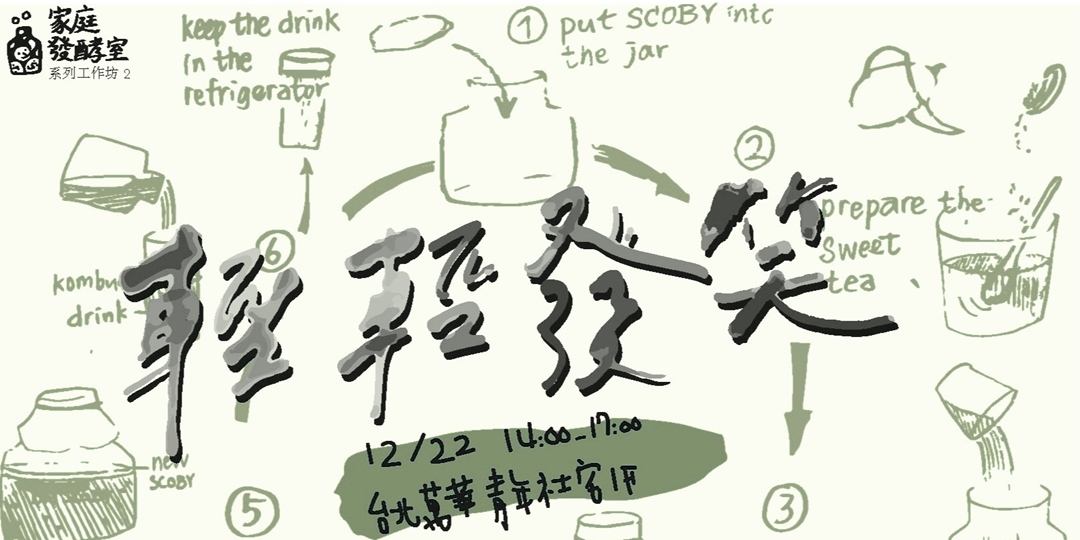 家庭
發酵室
系列工作坊 2
keep the drink
in the
refrigerator
① put SCOBY into
the jar
②
prepare the
sweet
tea
⑥
kombu
drink
輕輕發笑
12/22 14:00-17:00
台北萬華青年社宅1F
new
SCOBY
⑤
③